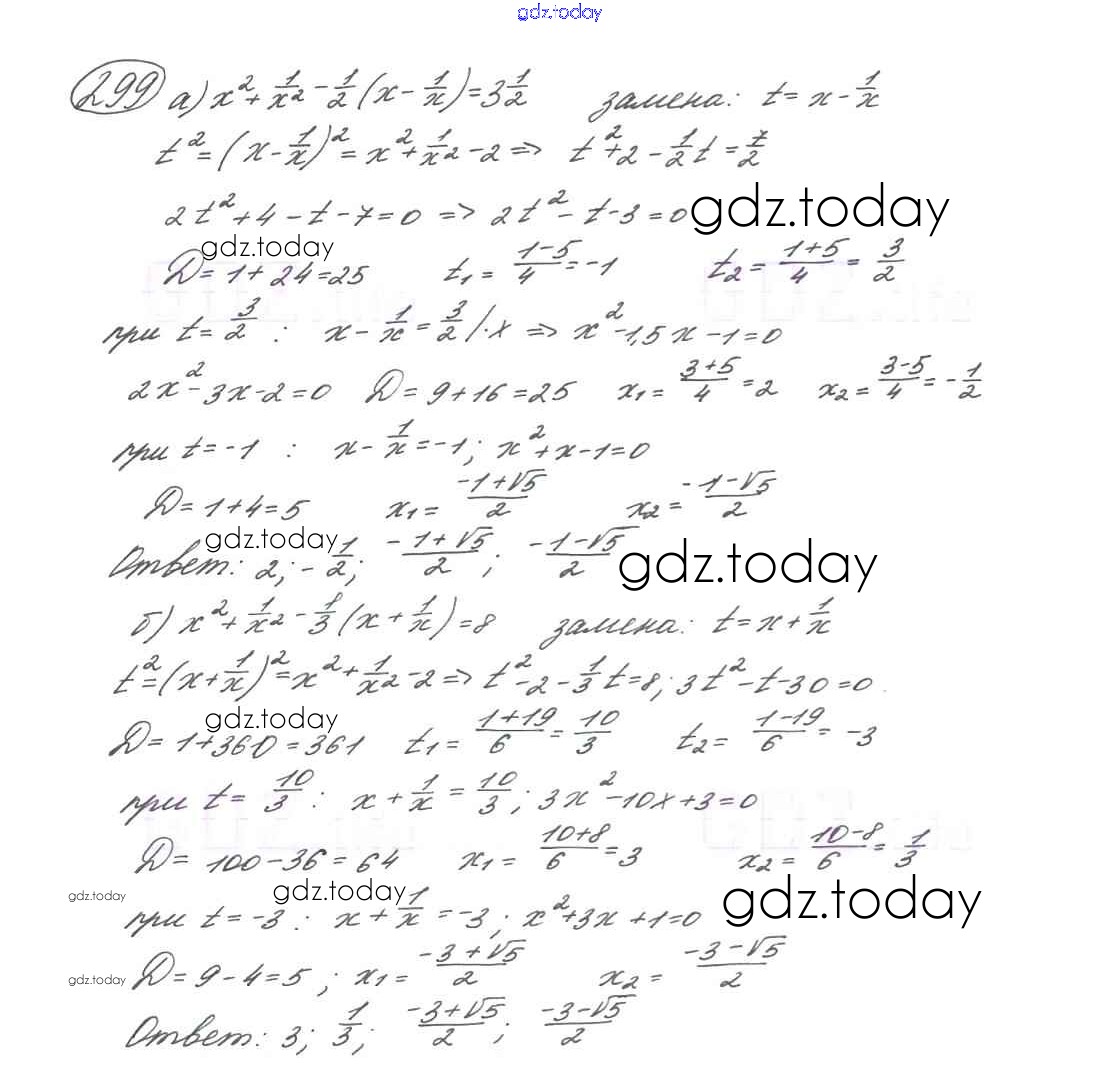 gdz.today
299 а) x² + 1/x² - 1/2 (x - 1/x) = 3 1/2 замена: t = x - 1/x
t² = (x - 1/x)² = x² + 1/x² - 2 => t² + 2 - 1/2 t = 7/2
2t² + 4 - t - 7 = 0 => 2t² - t - 3 = 0 gdz.today
gdz.today
D = 1 + 24 = 25 t₁ = (1-5)/4 = -1 t₂ = (1+5)/4 = 3/2
при t = 3/2 : x - 1/x = 3/2 /·x => x² - 1,5x - 1 = 0
2x² - 3x - 2 = 0 D = 9 + 16 = 25 x₁ = (3+5)/4 = 2 x₂ = (3-5)/4 = -1/2
при t = -1 : x - 1/x = -1; x² + x - 1 = 0
D = 1 + 4 = 5 x₁ = (-1+√5)/2 x₂ = (-1-√5)/2
gdz.today
Ответ: 2; -1/2; (-1+√5)/2; (-1-√5)/2 gdz.today
б) x² + 1/x² - 1/3 (x + 1/x) = 8 замена: t = x + 1/x
t² = (x + 1/x)² = x² + 1/x² - 2 => t² - 2 - 1/3 t = 8; 3t² - t - 30 = 0
gdz.today
D = 1 + 360 = 361 t₁ = (1+19)/6 = 10/3 t₂ = (1-19)/6 = -3
при t = 10/3 : x + 1/x = 10/3 ; 3x² - 10x + 3 = 0
D = 100 - 36 = 64 x₁ = (10+8)/6 = 3 x₂ = (10-8)/6 = 1/3
gdz.today gdz.today gdz.today
при t = -3 : x + 1/x = -3 ; x² + 3x + 1 = 0
gdz.today D = 9 - 4 = 5 ; x₁ = (-3+√5)/2 x₂ = (-3-√5)/2
Ответ: 3; 1/3; (-3+√5)/2; (-3-√5)/2